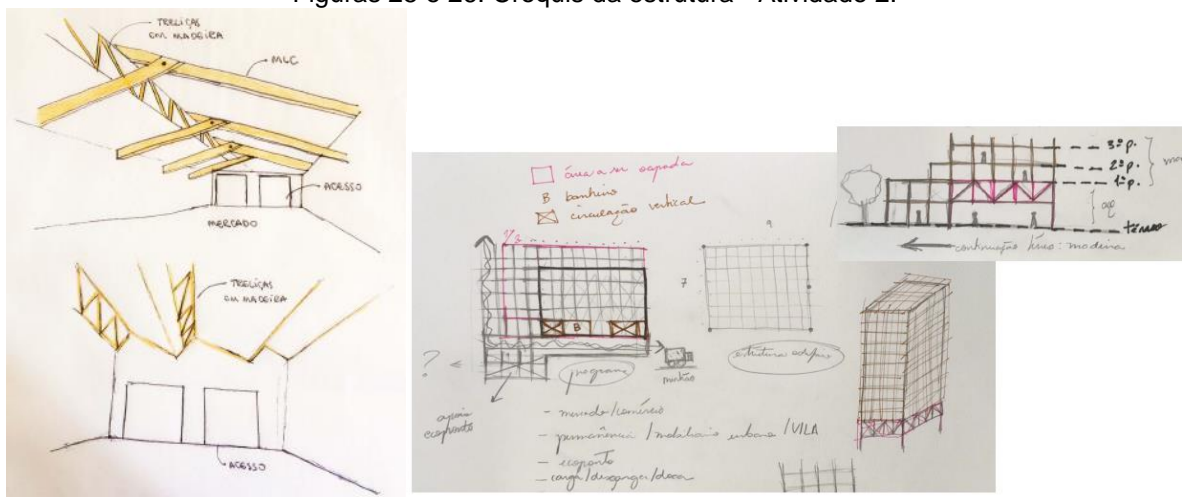 Figuras 25 e 26: Croquis da estrutura - Atividade 2.
TRELIÇAS
EM MADEIRA
MLC
ACESSO
MERCADO
TRELIÇAS
EM MADEIRA
ACESSO
área a ser ocupada
B banheiro
circulação vertical
B
9
7
?
apoio
ecoponto
programa
estrutura edifício
- mercado/comércio
- permanência / mobiliário urbano / VILA
- ecoponto
- carga/descarga/doca
3º p.
2º p.
1º p.
aço
térreo
continuação liceu: madeira